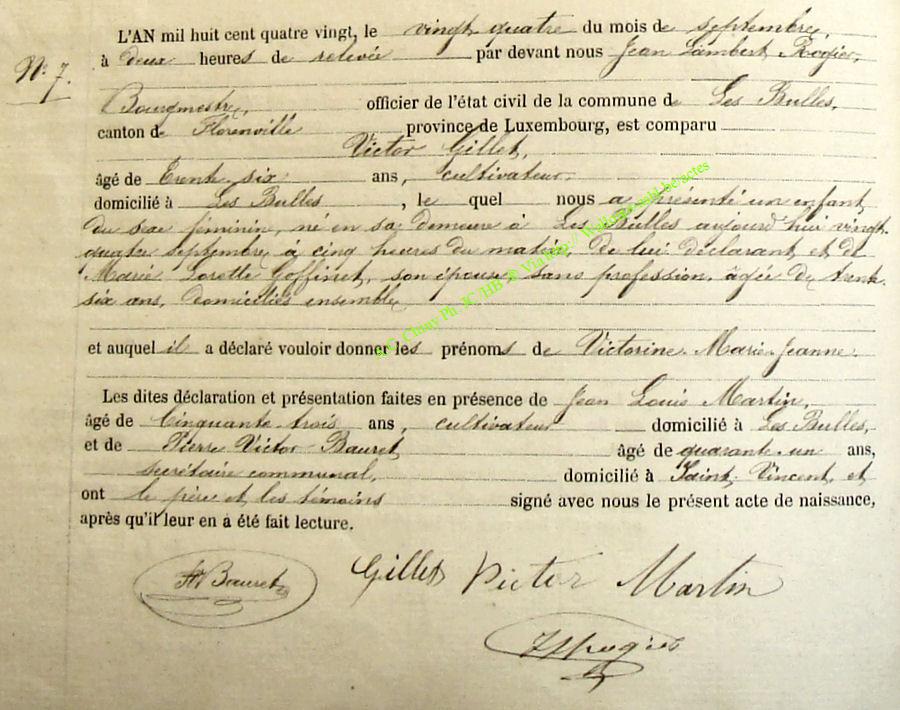 L'AN mil huit cent quatre vingt, le vingt quatre du mois de septembre,
à deux heures de relevée par devant nous Jean Lambert Rogier,
N° 7.
Bourgmestre, officier de l'état civil de la commune de Les Bulles,
canton de Florenville province de Luxembourg, est comparu
Victor Gillet,
âgé de trente-six ans, cultivateur,
domicilié à Les Bulles, le quel nous a présenté un enfant
du sexe féminin, né en sa demeure à Les Bulles aujourd'hui vingt-
quatre septembre, à cinq heures du matin, de lui déclarant et de
Marie Lorette Goffinet, son épouse, sans profession, âgée de trente-
six ans, domiciliés ensemble
et auquel il a déclaré vouloir donner les prénoms de Victorine-Marie-Jeanne.
Les dites déclaration et présentation faites en présence de Jean Louis Martin,
âgé de Cinquante trois ans, cultivateur domicilié à Les Bulles,
et de Pierre Victor Bauret âgé de quarante-un ans,
secrétaire communal, domicilié à Saint-Vincent, et
ont le père et les témoins signé avec nous le présent acte de naissance,
après qu'il leur en a été fait lecture.
Bauret Gillet Victor Martin
JLRogier